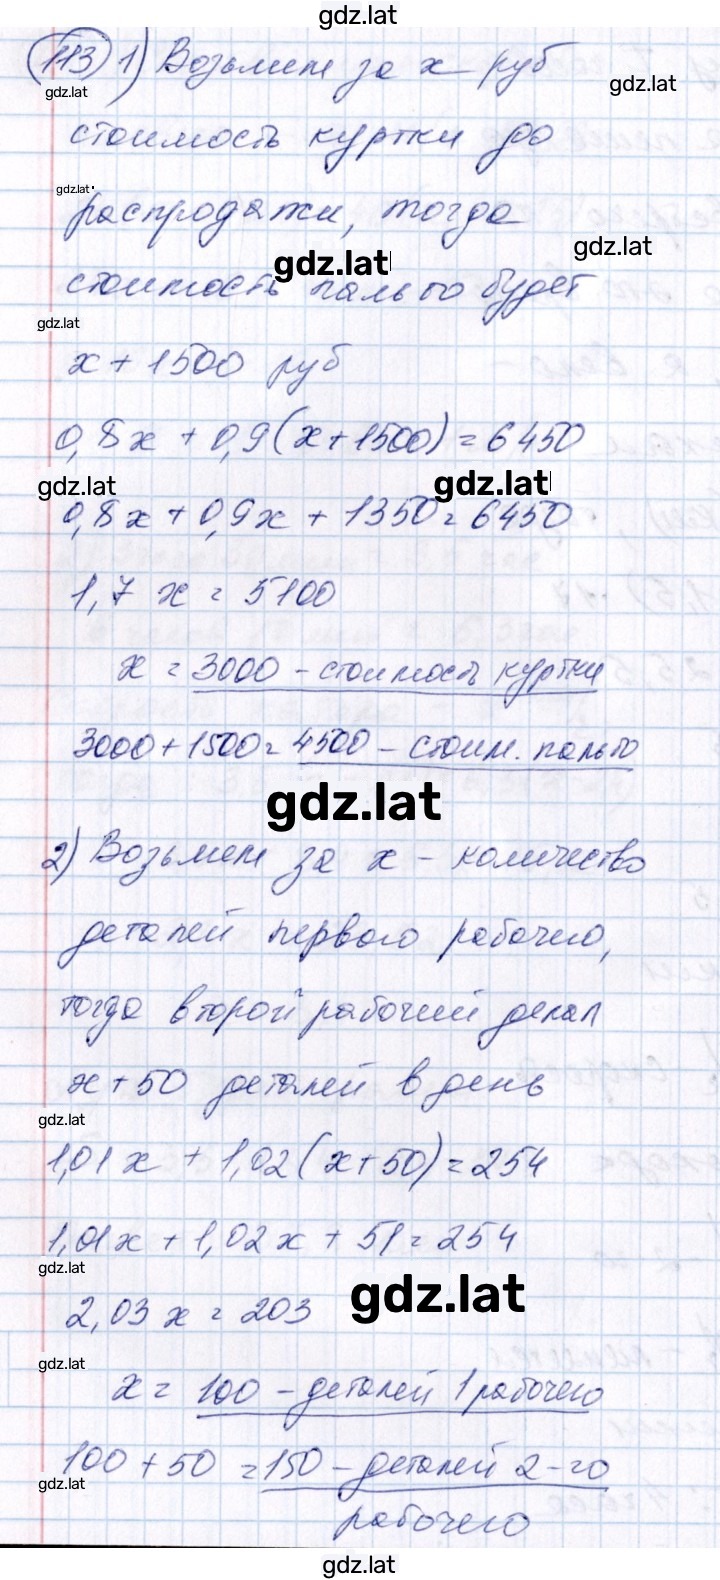 gdz.lat
113 1) Возьмем за x руб
gdz.lat
gdz.lat
стоимость куртки до
gdz.lat
распродажи, тогда
gdz.lat
gdz.lat
стоимость пальто будет
gdz.lat
x + 1500 руб
0,8x + 0,9(x+1500) = 6450
gdz.lat
gdz.lat
0,8x + 0,9x + 1350 = 6450
1,7 x = 5100
x = 3000 - стоимость куртки
3000 + 1500 = 4500 - стоим. пальто
gdz.lat
2) Возьмем за x - количество
деталей первого рабочего,
тогда второй рабочий делал
x + 50 деталей в день
gdz.lat
1,01x + 1,02(x+50) = 254
1,01x + 1,02x + 51 = 254
gdz.lat
gdz.lat
2,03 x = 203
gdz.lat
x = 100 - деталей 1 рабочего
100 + 50 = 150 - деталей 2-го
gdz.lat
рабочего
gdz.lat